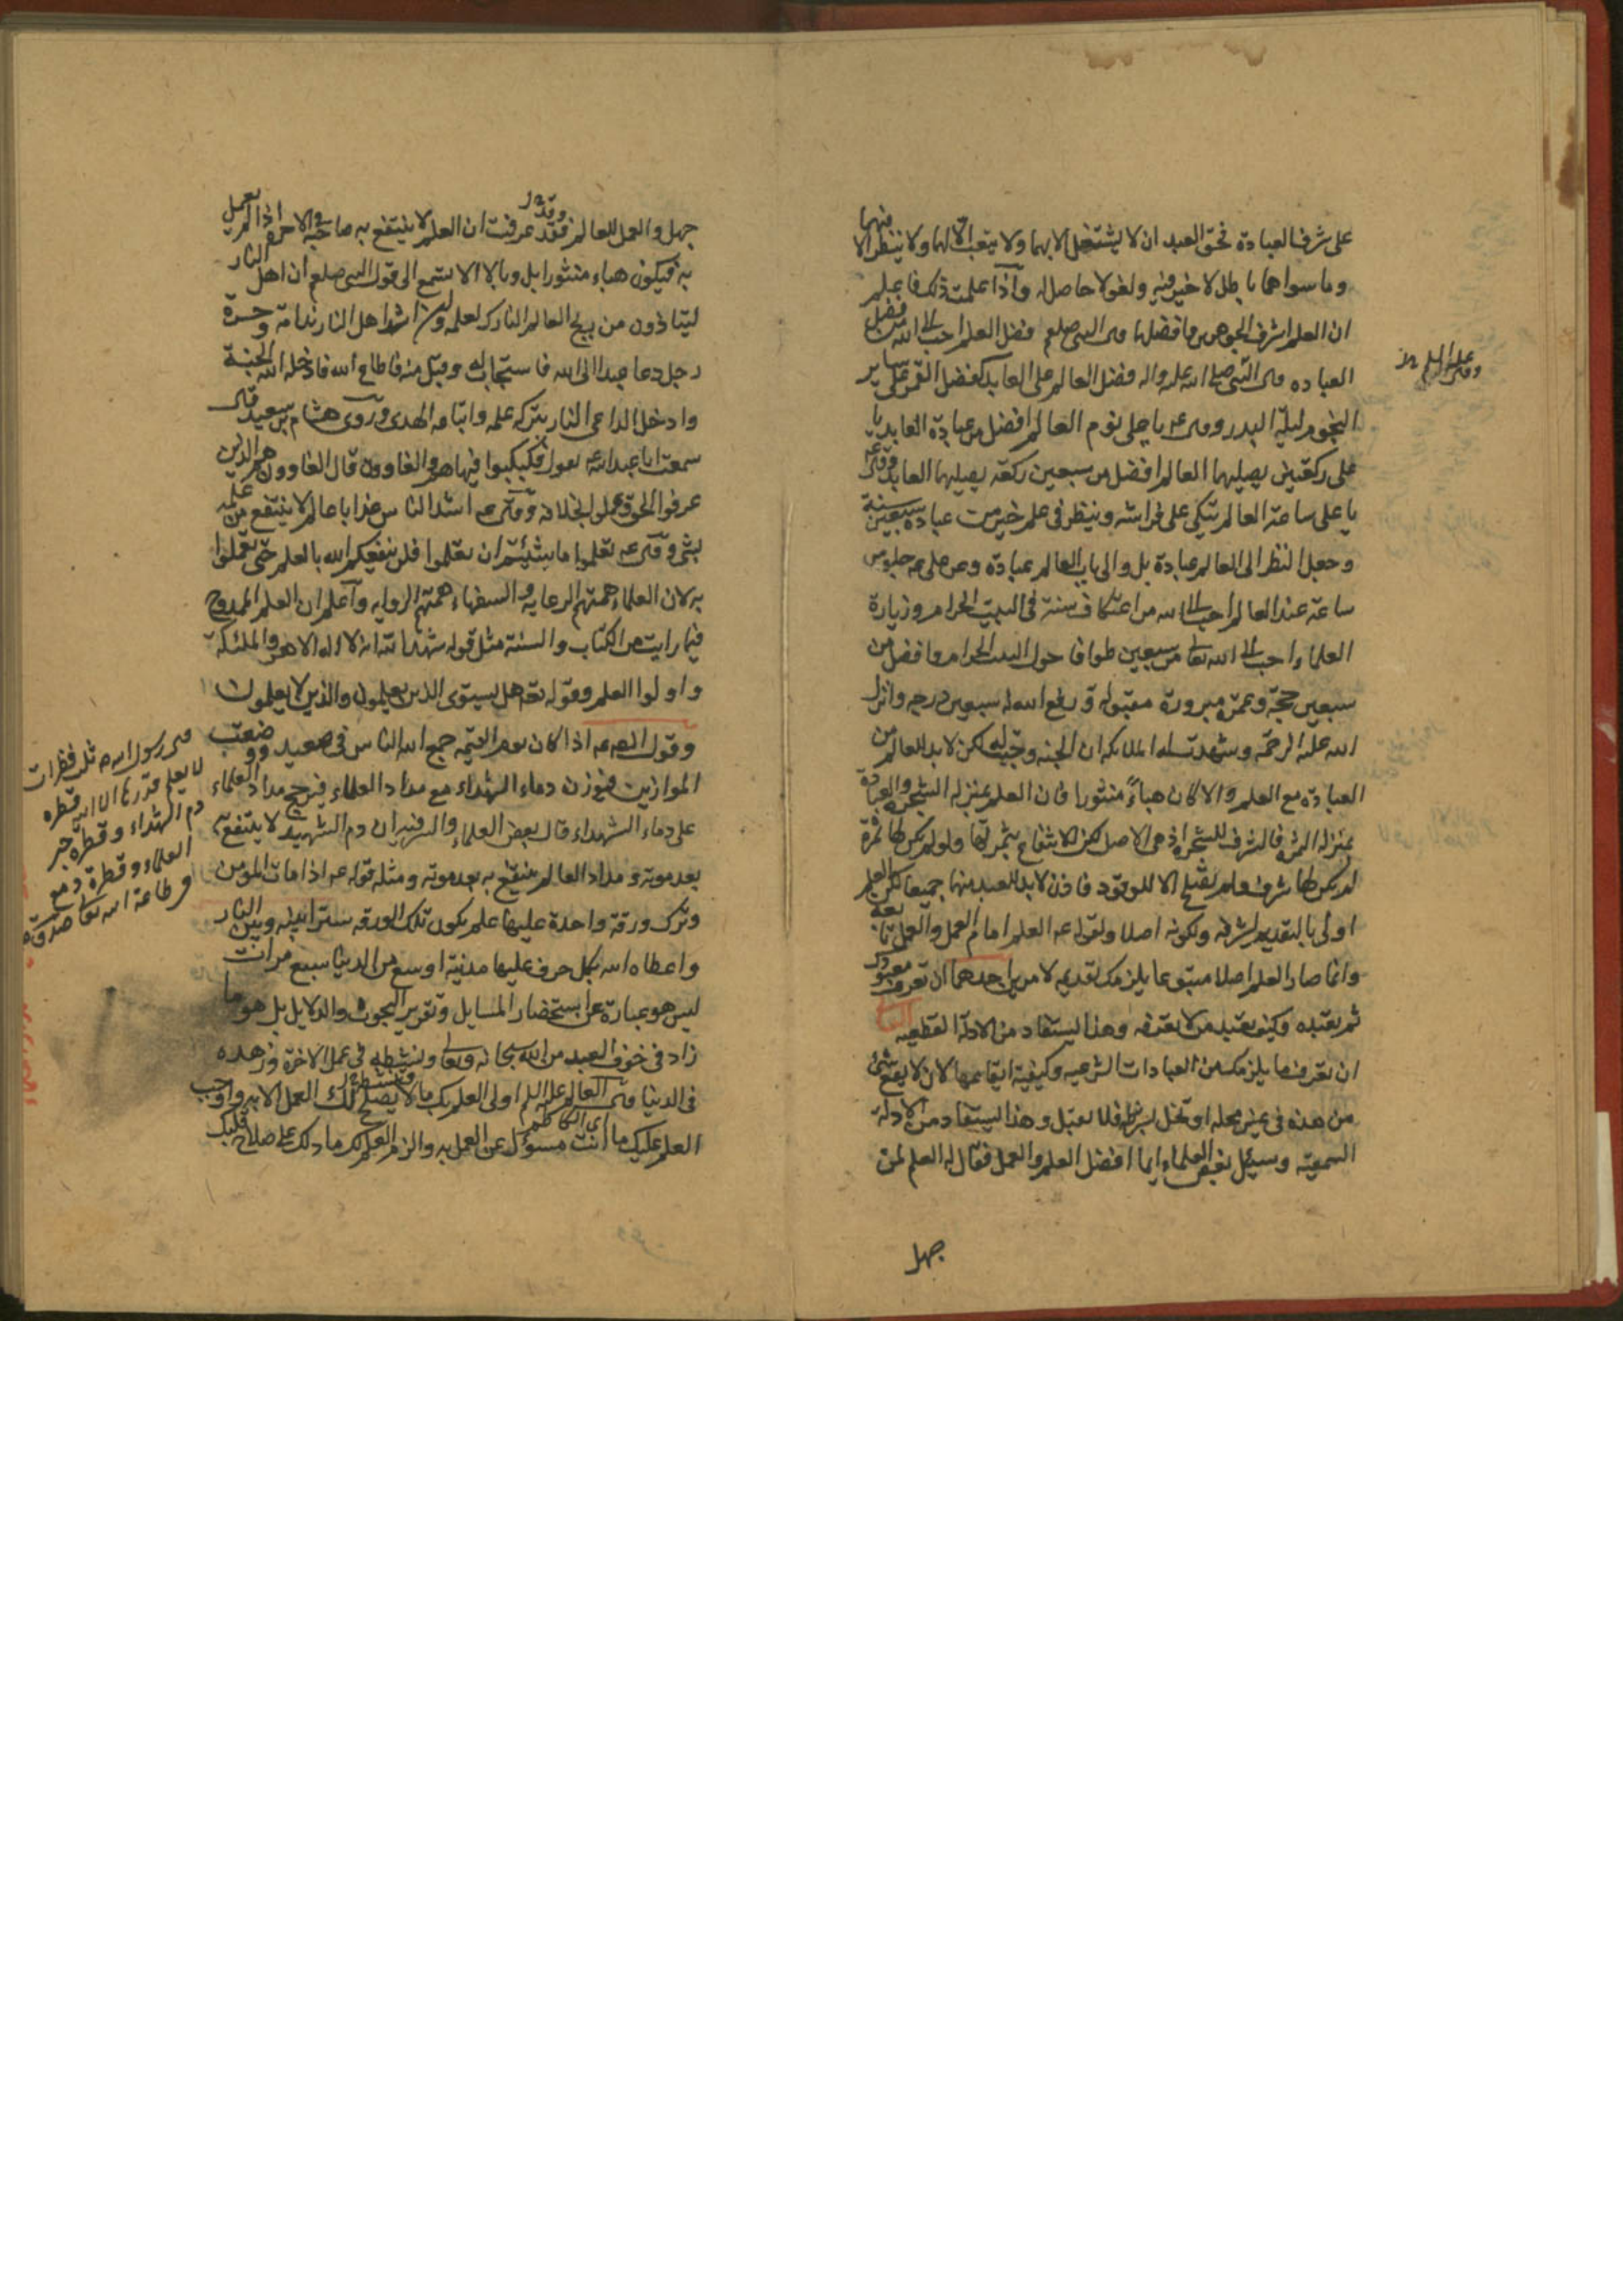 على شرف العبادة فحق العبد ان لا يشتغل الا بهما ولا يتعب الا لهما ولا ينظر الا فيهما
وما سواهما باطل لا خير فيه ولغو لا حاصل له واذا علمت ذلك فاعلم
ان العلم اشرف الجوهرين وافضلهما قال النبي صلعم فضل العلم احب الى الله من فضل
العباده وقال النبي صلى الله عليه واله فضل العالم على العابد كفضل القمر على ساير
النجوم ليلة البدر وقال عه يا على نوم العالم افضل من عبادة العابد يا
على ركعتين يصليهما العالم افضل من سبعين ركعة يصليها العابد وقال عه
يا على ساعة العالم يتكى على فراشه وينظر في علم خير من عبادة سبعين سنة
وجعل النظر الى العالم عبادة بل والى باب العالم عبادة وعن على عه جلوس
ساعة عند العالم احب الى الله من اعتكاف سنة في البيت الحرام وزيارة
العلماء احب الى الله تعالى من سبعين طوافا حول البيت الحرام وافضل من
سبعين حجة وعمرة مبرورة مقبوله ورفع الله له سبعين درجه وانزل
الله عليه الرحمة وشهدت له الملايكه ان الجنه وجبت له لكن لا بد للعالم من
العبادة مع العلم والا كان هباءً منثورا فان العلم بمنزلة الشجرة والعبادة
بمنزله الثمرة فالشرف للشجرة اذ هى الاصل لكن الانتفاع بثمرتها ولو لم يكن لها ثمرة
لم يكن لها شرف ولم تصلح الا للوقود فاذن لا بد للعبد منهما جميعا لكن العلم
اولى بالتقديم لشرفه ولكونه اصلا ولقوله عه العلم امام العمل والعمل تابعه
وانما صار العلم اصلا متبوعا يلزمك تقديمه لامرين احدهما ان تعرف معبودك
ثم تعبده وكيف تعبد من لا تعرفه وهذا يستفاد من الادلة القطعيه
ان تعرف ما يلزمك من العبادات الشرعيه وكيفية ايقاعها لان لا يقع شئ
من هذه في غير محله او تخل بشرطه فلا تقبل وهذا يستفاد من الادلة
السمعية وسئل بعض العلماء ايما افضل العلم والعمل فقال له العلم لمن
جهل
وقال عليه السلم
جهل والعمل للعالم فقد عرفت ان العلم لا ينتفع به صاحبه في الاخرة اذا لم يعمل
به فيكون هباء منثورا بل وبالا الا تستمع الى قول النبي صلعم ان اهل النار
ليتاذون من ريح العالم التارك لعلمه وان اشد اهل النار ندامة وحسرة
رجل دعا عبدا الى الله فاستجاب له وقبل منه فاطاع الله فادخله الله الجنة
وادخل الداعي النار بتركه علمه واتباعه الهدى وروى هشام بن سعيد قال
سمعت ابا عبد الله عه يقول فكبكبوا فيها هم والغاوون قال الغاوون هم الذين
عرفوا الحق وعملوا بخلافه وقال عه اشد الناس عذابا عالم لا ينتفع من علمه
بشئ وقال عه تعلموا ما شئتم ان تعلموا فلن ينفعكم الله بالعلم حتى تعملوا
به لان العلماء همتهم الرعايه والسفهاء همتهم الروايه واعلم ان العلم الممدوح
فيما رايت من الكتاب والسنة مثل قوله شهد الله انه لا اله الا هو والملئكة
واولوا العلم وقوله تعه هل يستوى الذين يعلمون والذين لا يعلمون
وقول الصه عه اذا كان يوم القيمه جمع الله الناس في صعيد ووضعت
الموازين فتوزن دماء الشهداء مع مداد العلماء فيرجح مداد العلماء
على دماء الشهداء قال بعض العلماء والسر فيه ان دم الشهيد لا ينتفع به
بعد موته ومداد العالم ينتفع به بعد موته ومثله قوله عه اذا مات المؤمن
وترك ورقة واحدة عليها علم يكون تلك الورقه سترا بينه وبين النار
واعطاه الله بكل حرف عليها مدينة اوسع من الدنيا سبع مرات
ليس هو عبارة عن استحضار المسايل وتقرير البحوث والدلايل بل هو ما
زاد في خوف العبد من الله سبحانه وتعالى ونشطه في عمل الاخرة وزهده
في الدنيا وقال العالم عليه السلم اولى العلم بك ما لا يصلح لك العمل الا به واوجب
العلم عليك ما انت مسؤل عن العمل به والزم العلم لك ما دلك على صلاح قلبك
قال رسول الله ص ثلث قطرات
لا يعلم قدرها الا الله قطرة
دم الشهداء وقطرة حبر
العلماء وقطرة دمع